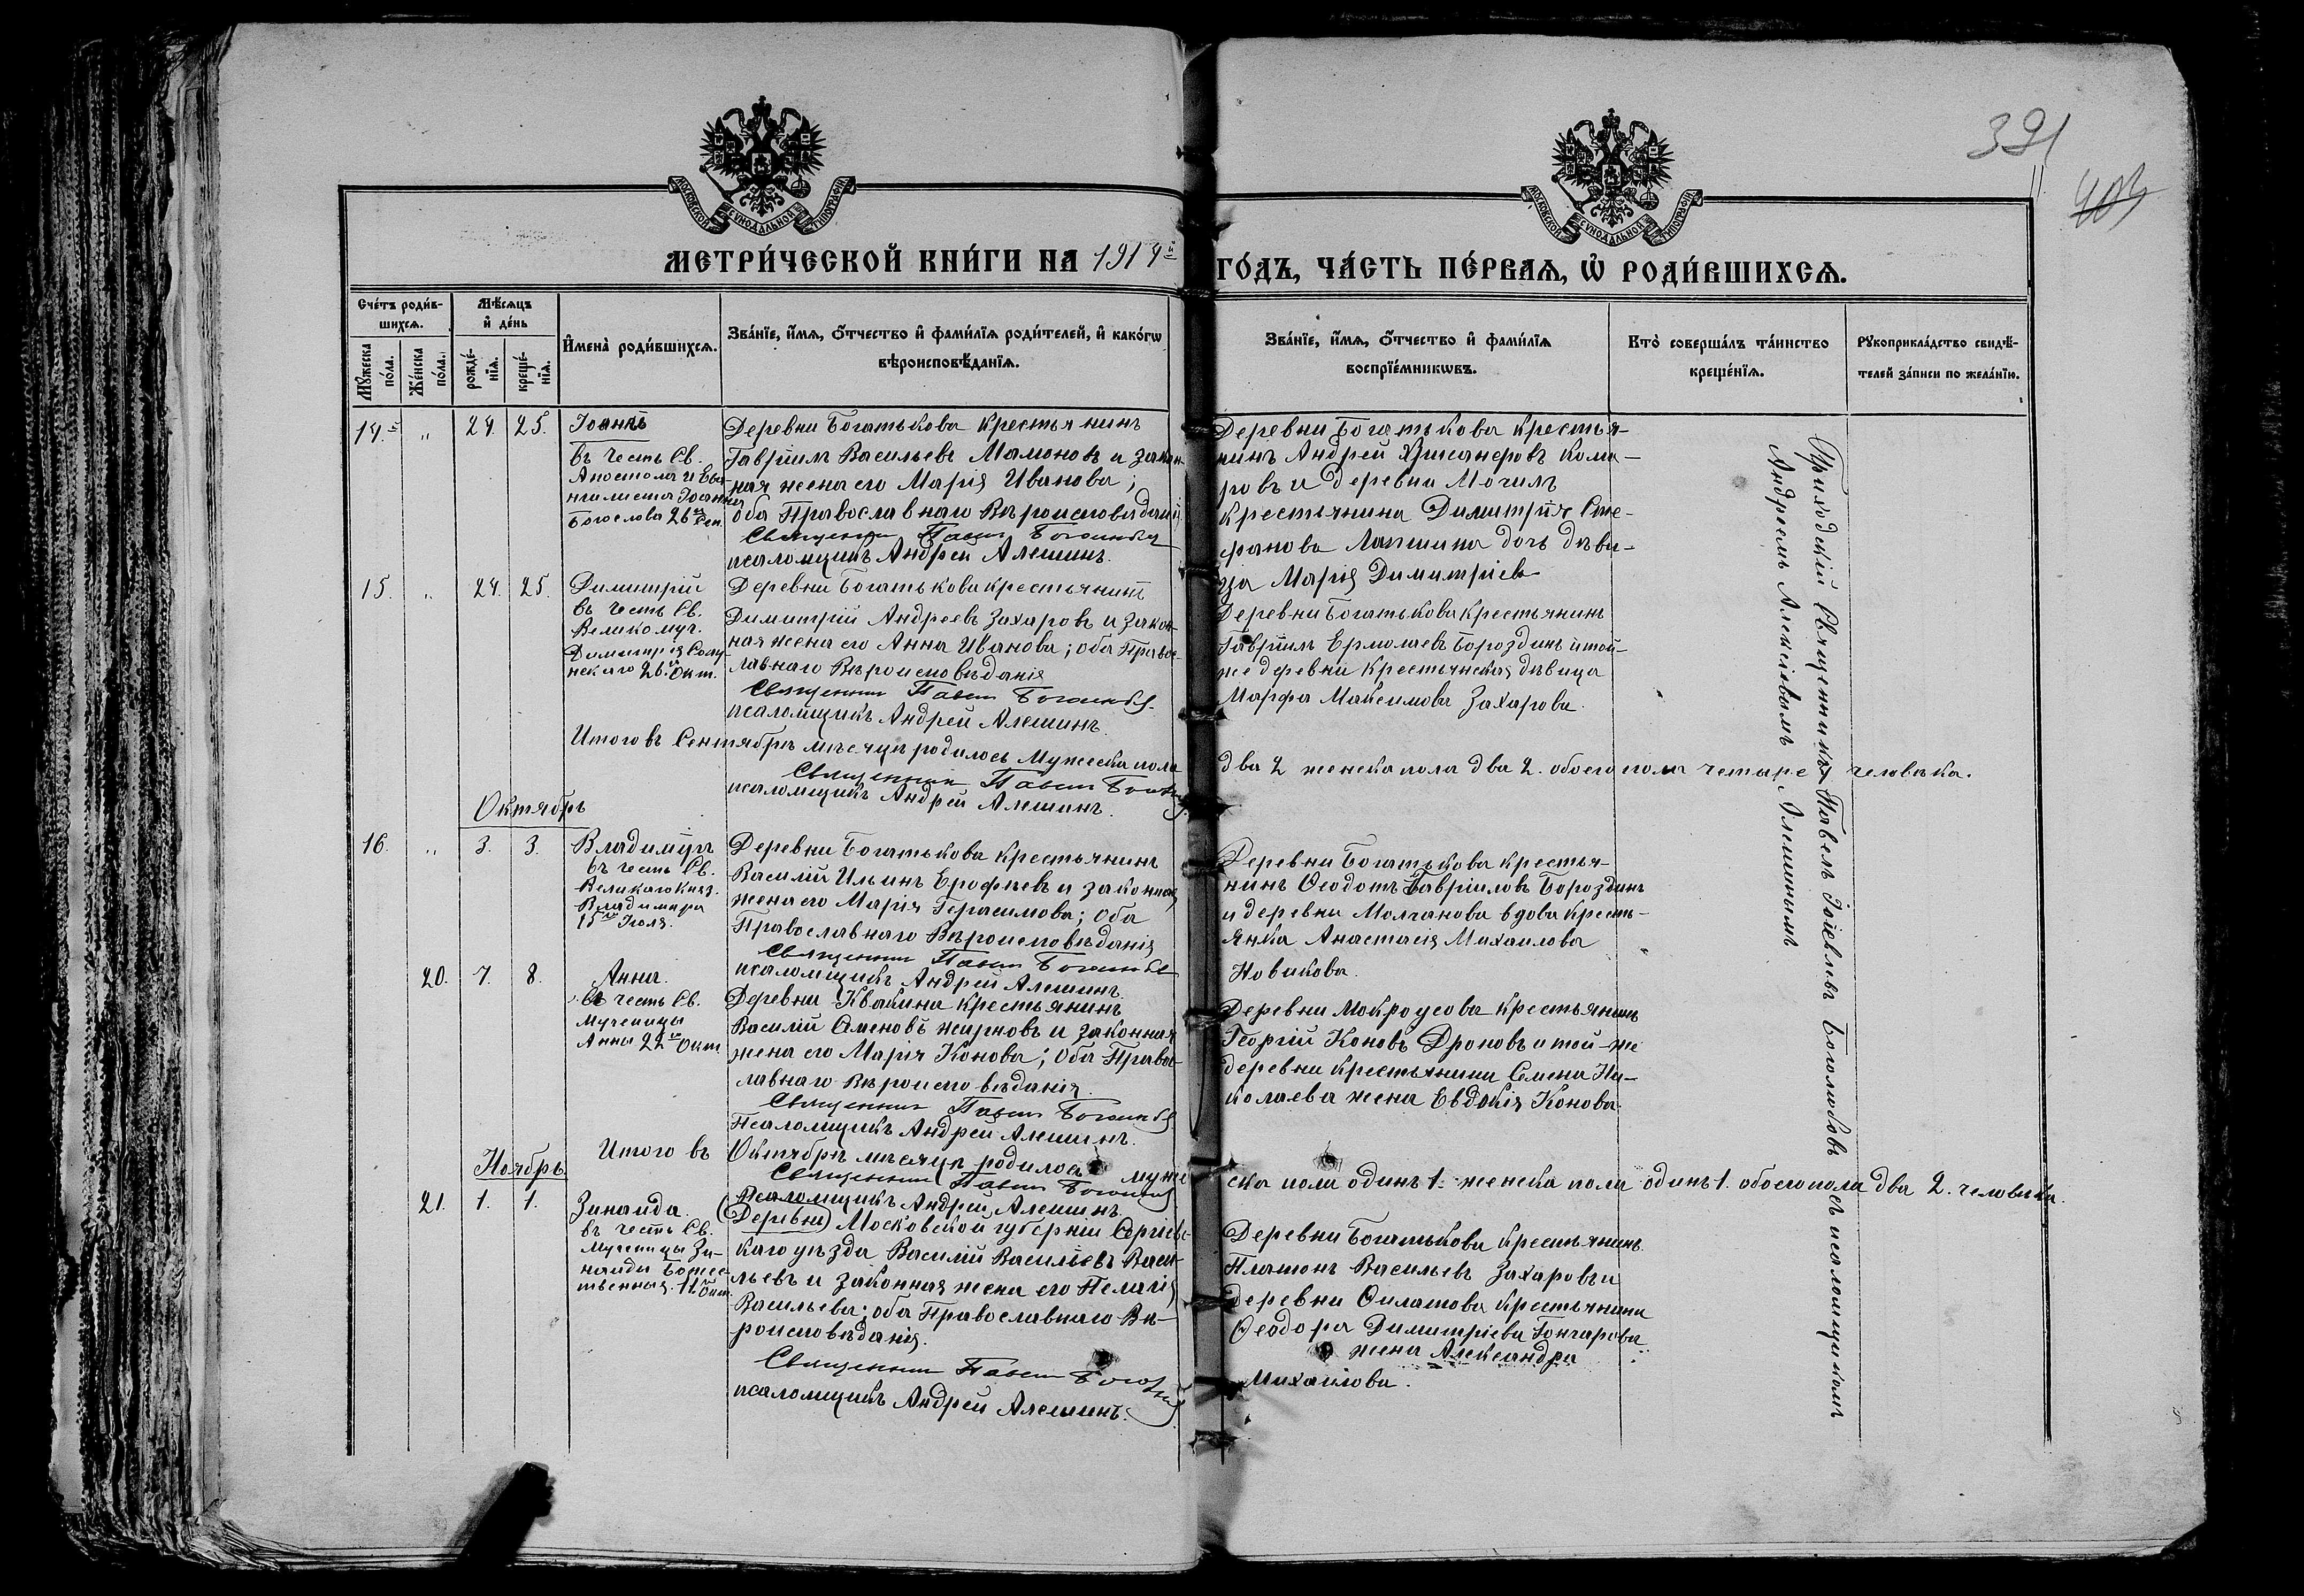 391
403
МОСКОВСКОЙ СѴНОДАЛЬНОЙ ТИПОГРАФІИ
МОСКОВСКОЙ СѴНОДАЛЬНОЙ ТИПОГРАФІИ
МЕТРИ́ЧЕСКОЙ КНИ́ГИ НА 1914й ГО́ДЪ, ЧА́СТЬ ПЕ́РВАѦ, Ѡ҆ РОДИ́ВШИХСѦ.
Сче́тъ роди́в-
шихсѧ.
Мꙋ́жеска
по́ла.
Же́нска
по́ла.
Мѣ́сѧцъ
и҆ де́нь
рожде́-
нїѧ.
креще́-
нїѧ.
И҆мена̀ роди́вшихсѧ.
Зва́нїе, и҆́мѧ, ѻ҆́тчество и҆ фами́лїѧ роди́телей, и҆ како́гѡ
вѣроисповѣ́данїѧ.
Зва́нїе, и҆́мѧ, ѻ҆́тчество и҆ фами́лїѧ
воспрїе́мникѡвъ.
Кто̀ соверша́лъ та́инство
креще́нїѧ.
Рꙋкоприкла́дство свидѣ́-
телей за́писи по жела́нїю.
14. " 24. 25.
Іоаннъ
въ честь Св.
Апостола и Ева-
нгелиста Іоанна
Богослова 26го Сен.
Деревни Богатькова крестьянинъ
Гавріилъ Васильевъ Мамоновъ и закон-
ная жена его Марія Иванова;
оба Православнаго Вѣроисповѣданія
Священникъ Павелъ Боголюбовъ
псаломщикъ Андрей Алешинъ.
Деревни Богатькова крестья-
нинъ Андрей Хрисанфовъ Кома-
ровъ и деревни Мочилъ
крестьянина Димитрія Сте-
фанова Лапшина дочь дѣви-
ца Марія Димитріева
15. " 24. 25.
Димитрій
въ честь Св.
Великомуч.
Димитрія Солу-
нскаго 26го Окт.
Деревни Богатькова крестьянинъ
Димитрій Андреевъ Захаровъ и закон-
ная жена его Анна Иванова; оба Правос-
лавнаго Вѣроисповѣданія
Священникъ Павелъ Боголюбовъ
псаломщикъ Андрей Алешинъ.
Деревни Богатькова крестьянинъ
Гавріилъ Ермолаевъ Бороздинъ и той-
же деревни крестьянская дѣвица
Марфа Максимова Захарова.
Итого въ Сентябрѣ мѣсяцѣ родилось Мужеска пола два 2 женска пола два 2. обоего пола четыре человѣка.
Священникъ Павелъ Боголюбовъ
псаломщикъ Андрей Алешинъ.
Октябрь
16. " 3. 3.
Владимиръ
въ честь Св.
Великаго Княз.
Владимира
15го Іюля.
Деревни Богатькова крестьянинъ
Василій Ильинъ Ерофѣевъ и законная
жена его Марія Герасимова; оба
Православнаго Вѣроисповѣданія
Священникъ Павелъ Боголюбовъ
псаломщикъ Андрей Алешинъ.
Деревни Богатькова крестья-
нинъ Ѳеодотъ Гавріиловъ Бороздинъ
и деревни Молчанова вдова кресть-
янка Анастасія Михаилова
Новикова.
20. 7. 8.
Анна.
въ честь Св.
Мученицы
Анны 22го Окт.
Деревни Квакина крестьянинъ
Василій Семеновъ Жирновъ и законная
жена его Марія Конова; оба Правос-
лавнаго Вѣроисповѣданія.
Священникъ Павелъ Боголюбовъ
Псаломщикъ Андрей Алешинъ.
Деревни Мокроусова крестьянинъ
Георгій Коновъ Дроновъ и той-же
деревни крестьянина Семена Ни-
колаева жена Евдокія Конова.
Итого въ Октябрѣ мѣсяцѣ родилось мужеска пола одинъ 1. женска пола одинъ 1. обоего пола два 2. человѣка.
Священникъ Павелъ Боголюбовъ
Псаломщикъ Андрей Алешинъ.
Ноябрь
21. 1. 1.
Зинаида.
въ честь Св.
Мученицы Зи-
наиды
11го Окт.
(Деревни) Московской губерніи Сергіевс-
каго уѣзда Василій Васильевъ Васи-
льевъ и законная жена его Пелагія
Васильева; оба Православнаго Вѣ-
роисповѣданія.
Священникъ Павелъ Боголюбовъ
псаломщикъ Андрей Алешинъ.
Деревни Богатькова крестьянинъ
Платонъ Васильевъ Захаровъ и
деревни Филатова крестьянина
Ѳеодора Димитріева Гончарова
жена Александра
Михаилова.
Приходскій Священникъ Павелъ Іоіевлевъ Боголюбовъ съ псаломщикомъ
Андреемъ Алексіевымъ Алешинымъ